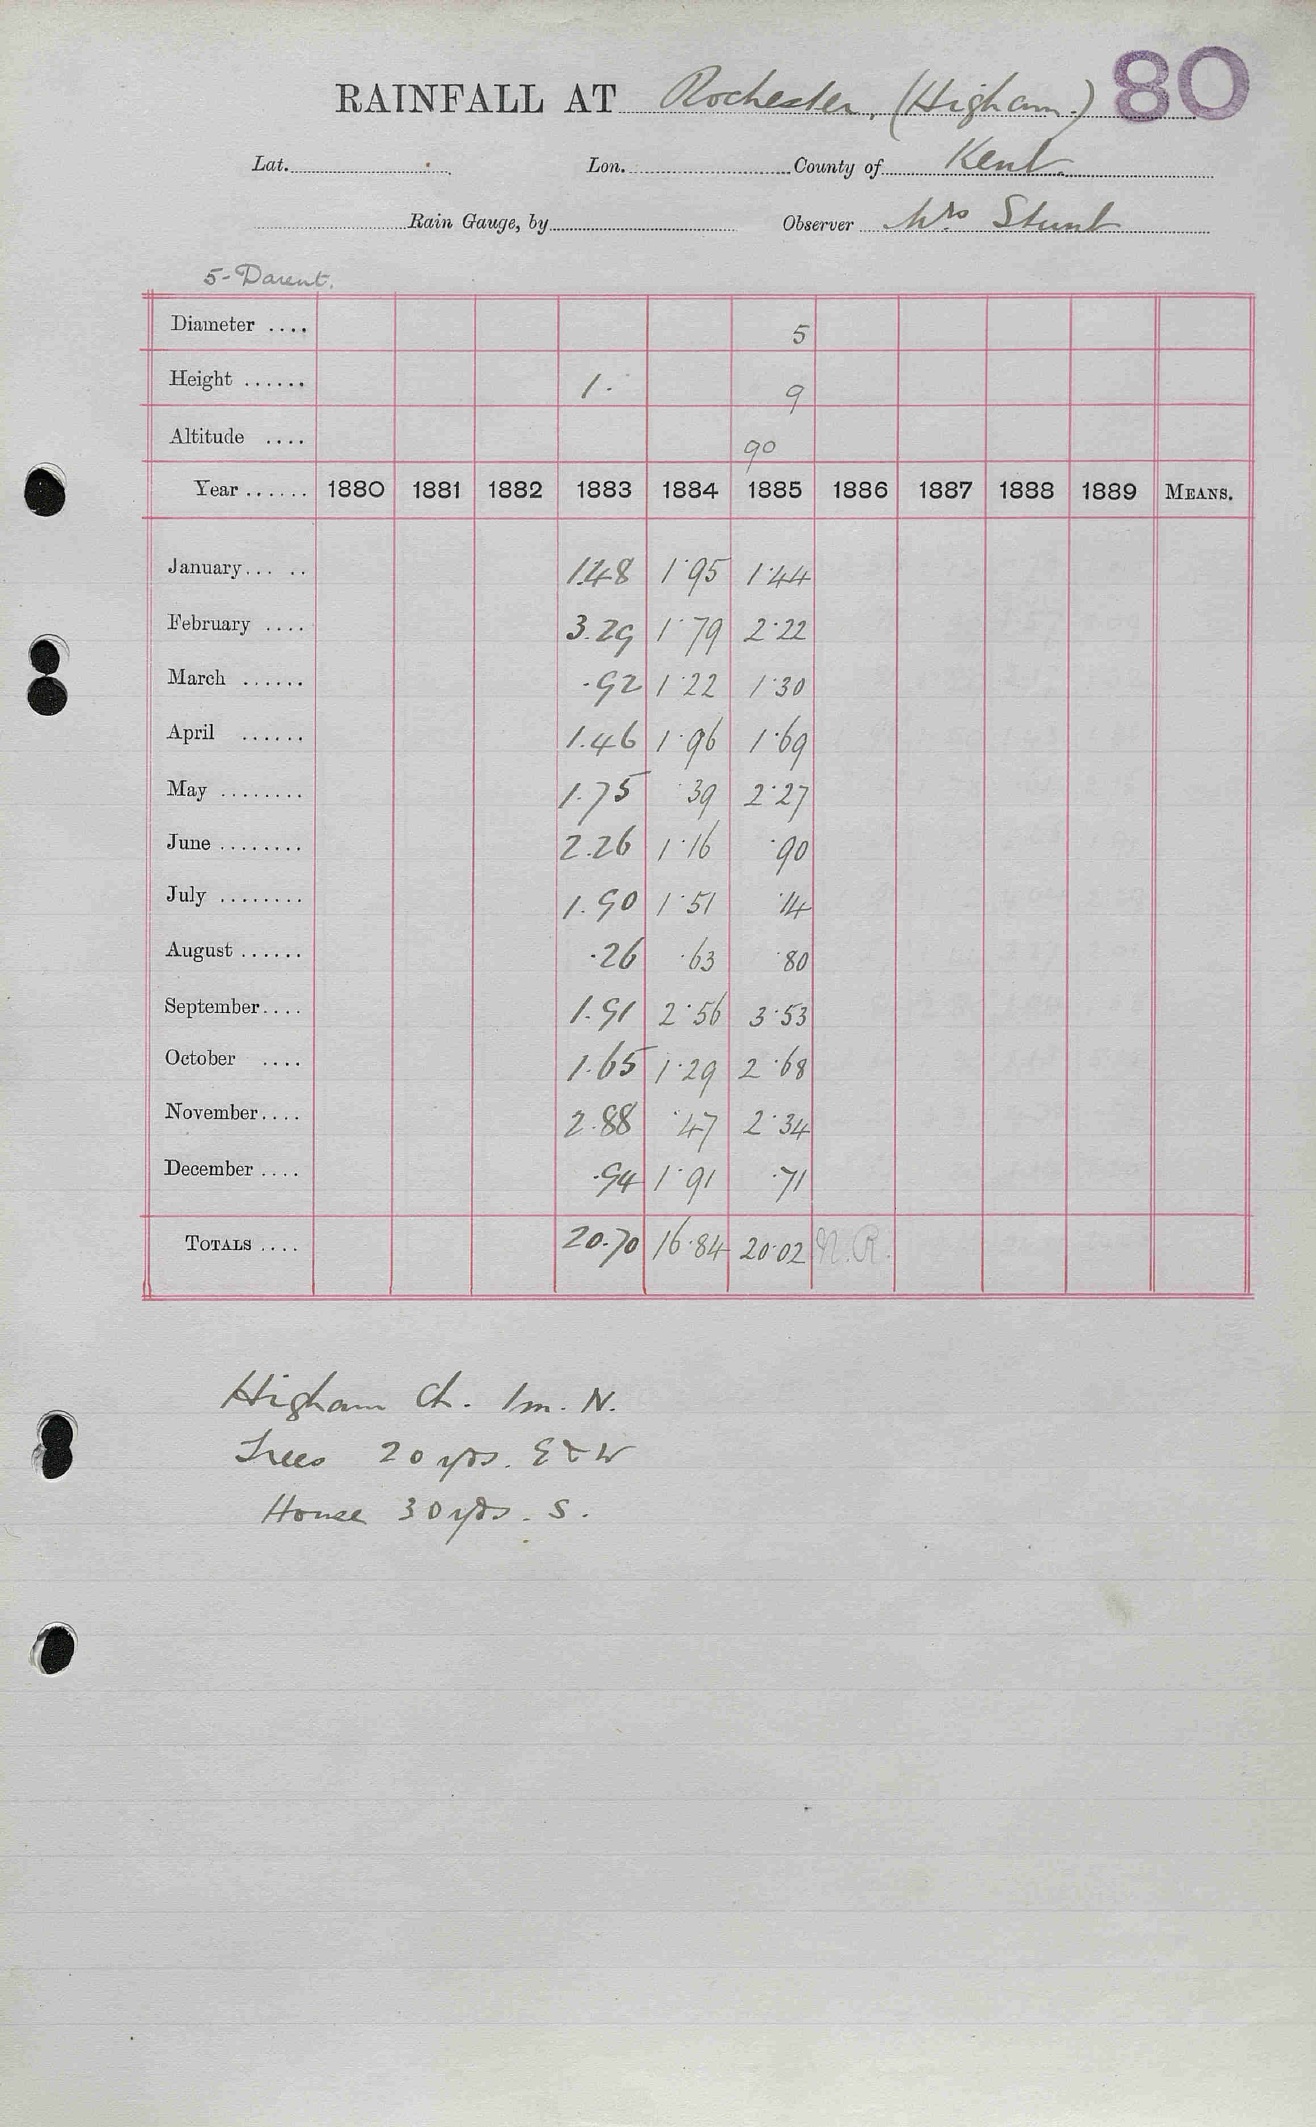 80
RAINFALL AT Rochester, (Higham.)
Lat. Lon. County of Kent.
Rain Gauge, by Observer Mrs Stunt
5-Darent.
Diameter .... 5
Height ...... 1. 9
Altitude .... 90
Year ...... 1880 1881 1882 1883 1884 1885 1886 1887 1888 1889 MEANS.
January... .. 1.48 1.95 1.44
February .... 3.29 1.79 2.22
March ...... .92 1.22 1.30
April ...... 1.46 1.96 1.69
May ........ 1.75 .39 2.27
June ........ 2.26 1.16 .90
July ........ 1.90 1.51 .14
August ...... .26 .63 .80
September.... 1.91 2.56 3.53
October .... 1.65 1.29 2.68
November.... 2.88 .47 2.34
December .... .94 1.91 .71
TOTALS .... 20.70 16.84 20.02 N.R.
Higham Ch. 1m. N.
Trees 20 yds. E & W
House 30 yds. S.